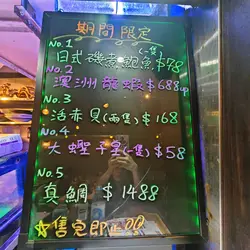 期間限定
No.1
日式磯煮鮑魚(一隻)$78
No.2
澳洲龍蝦$688up
No.3
活赤貝(兩隻)$168
No.4
大蟶子皇(一隻)$58
No.5
真鯛 $1488
☆售完即止